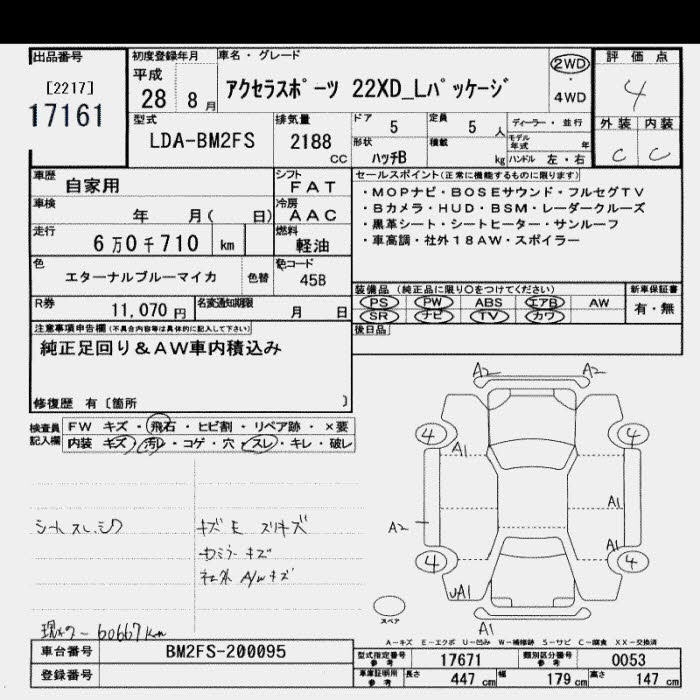 出品番号
[2217]
17161
初度登録年月
平成
28 8月
車名・グレード
アクセラスポーツ 22XD_Lパッケージ
2WD
・
4WD
評価点
4
外装 内装
C C
型式
LDA-BM2FS
排気量
2188
CC
ドア 5
定員 5 人
ディーラー・並行
モデル年式 年
形状
ハッチB
積載 kg
ハンドル 左・右
車歴 自家用
シフト
FAT
車検 年 月( 日)
冷房
AAC
走行 6万0千710 km
燃料
軽油
色 エターナルブルーマイカ 色替
色コード
45B
R券 11,070円
名変通知期限
月 日
セールスポイント(正常に機能するものに限ります)
・MOPナビ・BOSEサウンド・フルセグTV
・Bカメラ・HUD・BSM・レーダークルーズ
・黒革シート・シートヒーター・サンルーフ
・車高調・社外18AW・スポイラー
装備品(純正品に限り○をつけてください)
PS PW ABS エアB AW
SR ナビ TV カワ
新車保証書
有・無
後日品
注意事項申告欄(不具合内容等は具体的に記入して下さい)
純正足回り&AW車内積込み
修復歴 有〔箇所 〕
検査員記入欄
FW キズ・飛石・ヒビ割・リペア跡・×要
内装 キズ・汚レ・コゲ・穴・スレ・キレ・破レ
シートスレ、シワ
キズE スリキズ
セミラーキズ
社外A/Wキズ
60667km
A2 A2
4 4
A1
A1
A2
A1
4 4
UA1
A1
スペア
A-キズ E-エクボ U-凹み W-補修跡 S-サビ C-腐食 XX-交換済
車台番号 BM2FS-200095
登録番号
型式指定番号
参考
17671
類別区分番号
参考
0053
車庫証明用
参考
長さ 447 cm 幅 179 cm 高さ 147 cm